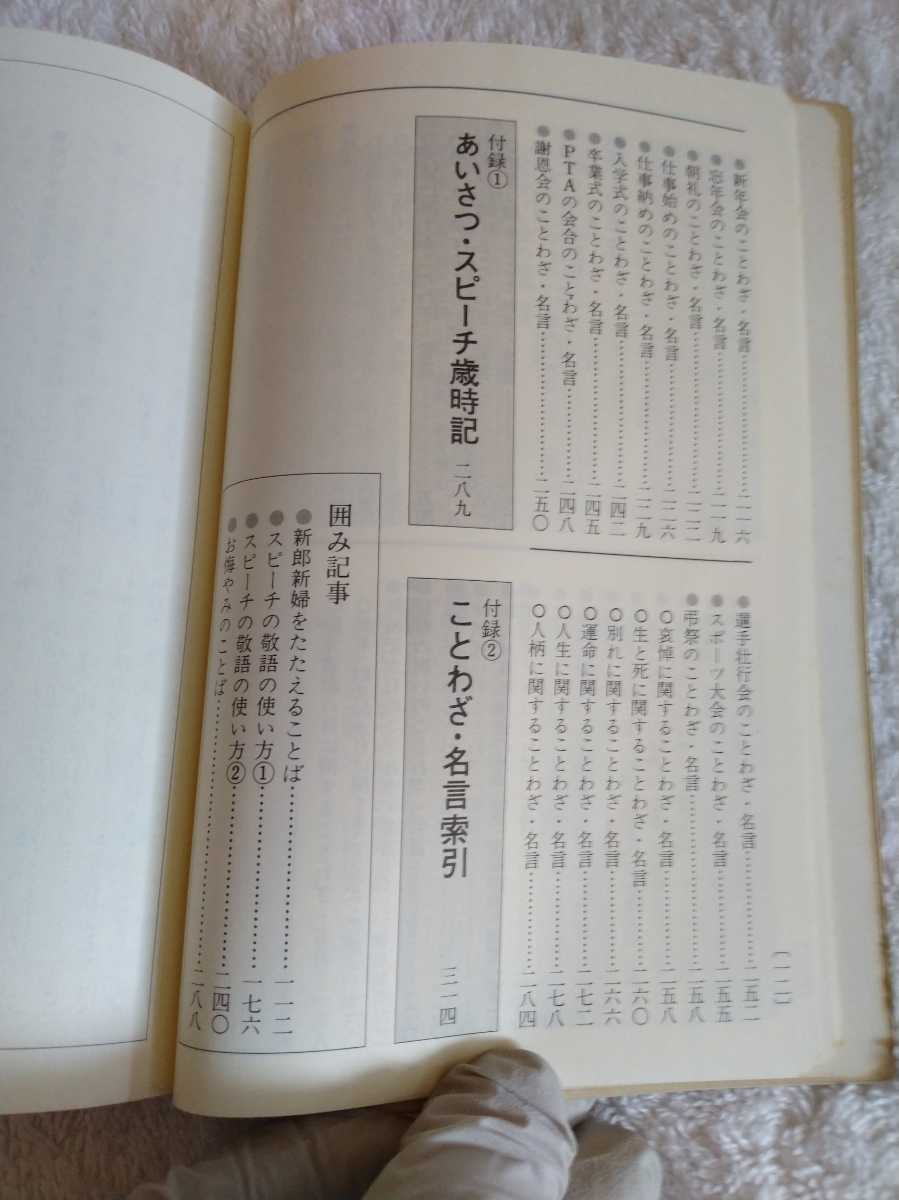 ●新年会のことわざ・名言…………………二一六
●忘年会のことわざ・名言…………………二一九
●朝礼のことわざ・名言……………………二二二
●仕事始めのことわざ・名言………………二二六
●仕事納めのことわざ・名言………………二二九
●入学式のことわざ・名言…………………二四二
●卒業式のことわざ・名言…………………二四五
●PTAの会合のことわざ・名言……………二四八
●謝恩会のことわざ・名言…………………二五〇
●選手壮行会のことわざ・名言……………二五二
●スポーツ大会のことわざ・名言…………二五五
●弔祭のことわざ・名言……………………二五八
○哀悼に関することわざ・名言……………二五八
○生と死に関することわざ・名言…………二六〇
○別れに関することわざ・名言……………二六六
○運命に関することわざ・名言……………二七二
○人生に関することわざ・名言……………二七八
○人柄に関することわざ・名言……………二八四
付録①
あいさつ・スピーチ歳時記 二八九
付録②
ことわざ・名言索引 三一四
囲み記事
●新郎新婦をたたえることば………………一一二
●スピーチの敬語の使い方①………………一七六
●スピーチの敬語の使い方②………………二四〇
●お悔やみのことば…………………………二八八
〔一二〕